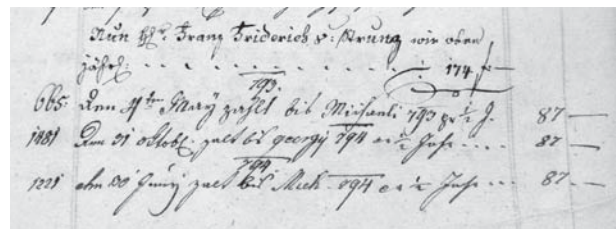 Nun H: Franz Friderich v: Strung wie oben
jährl: . . . . . . . . . 174
793.
665. Den 4ten May zahlt bis Michaeli 793 pr ½ J. 87 —
1481 Den 31 octobr: zalt bis georgy 794 a ½ Jahr .... 87 —
794
1221 den 30 Juny zalt bis Mich. 794 a ½ Jahr ... 87 —